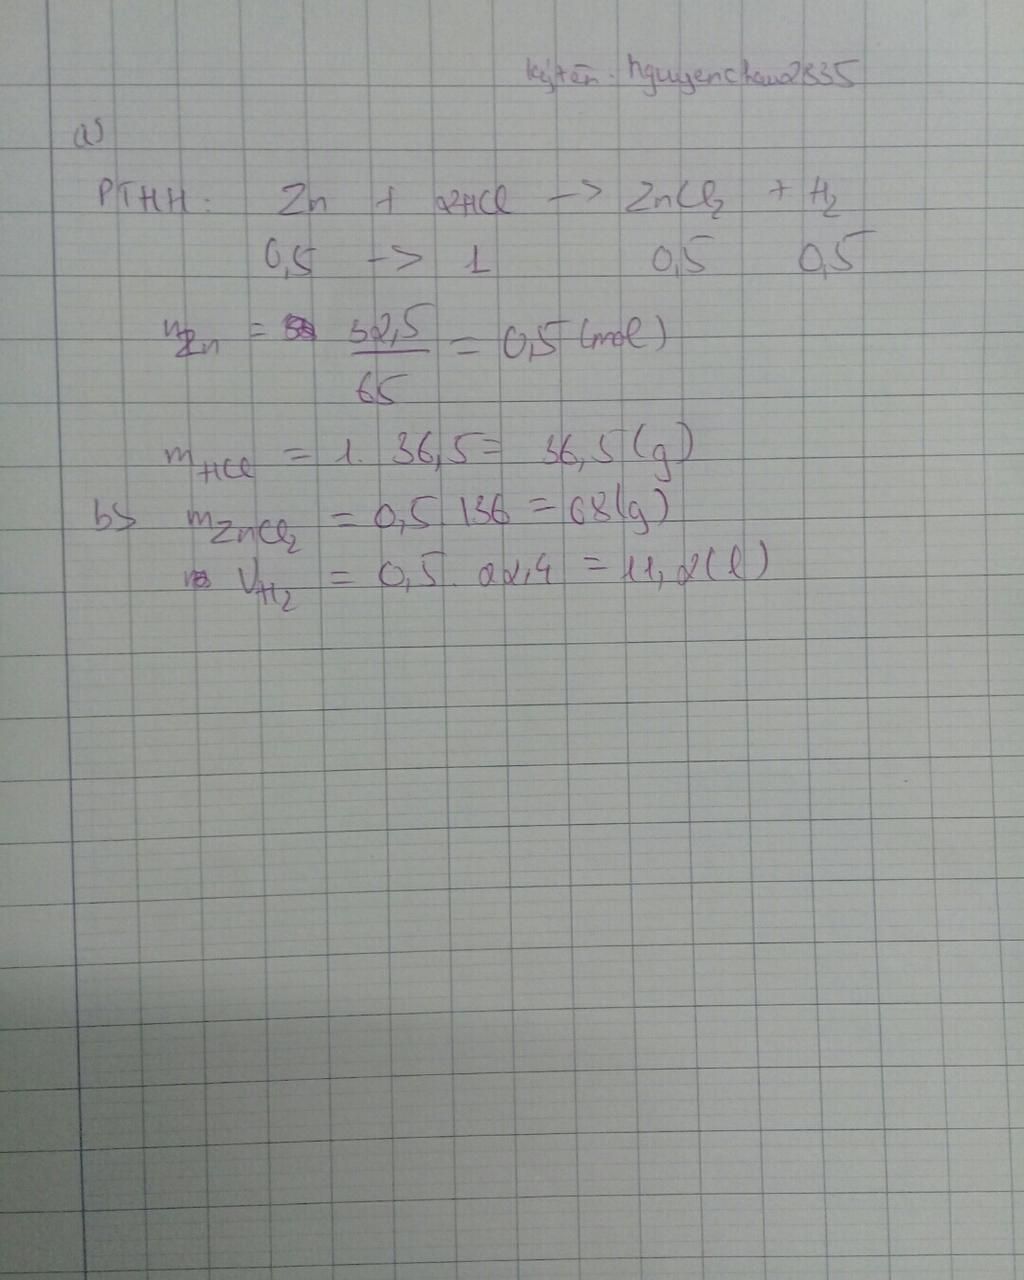 ký tên: nguyenchau2835
a)
PTHH: Zn + 2HCl -> ZnCl₂ + H₂
0,5 -> 1 0,5 0,5
nZn = 32,5/65 = 0,5 (mol)
mHCl = 1. 36,5 = 36,5 (g)
b) mZnCl₂ = 0,5 136 = 68 (g)
VH₂ = 0,5. 22,4 = 11,2 (l)